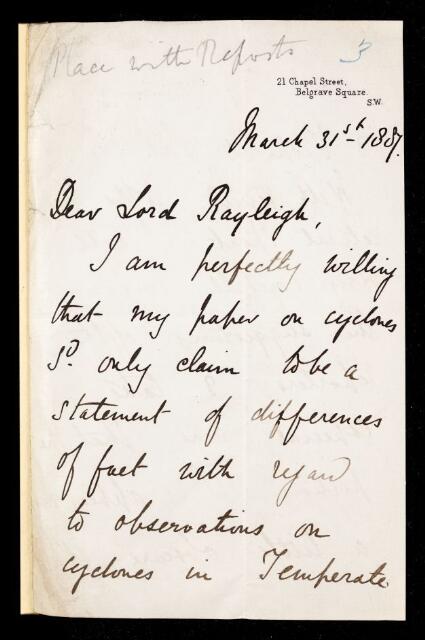 Place with Reports
3
21 Chapel Street,
Belgrave Square.
S.W.
March 31st 1887.
Dear Lord Rayleigh,
I am perfectly willing
that my paper on cyclones
sd. only claim to be a
statement of differences
of fact with regard
to observations on
cyclones in Temperate